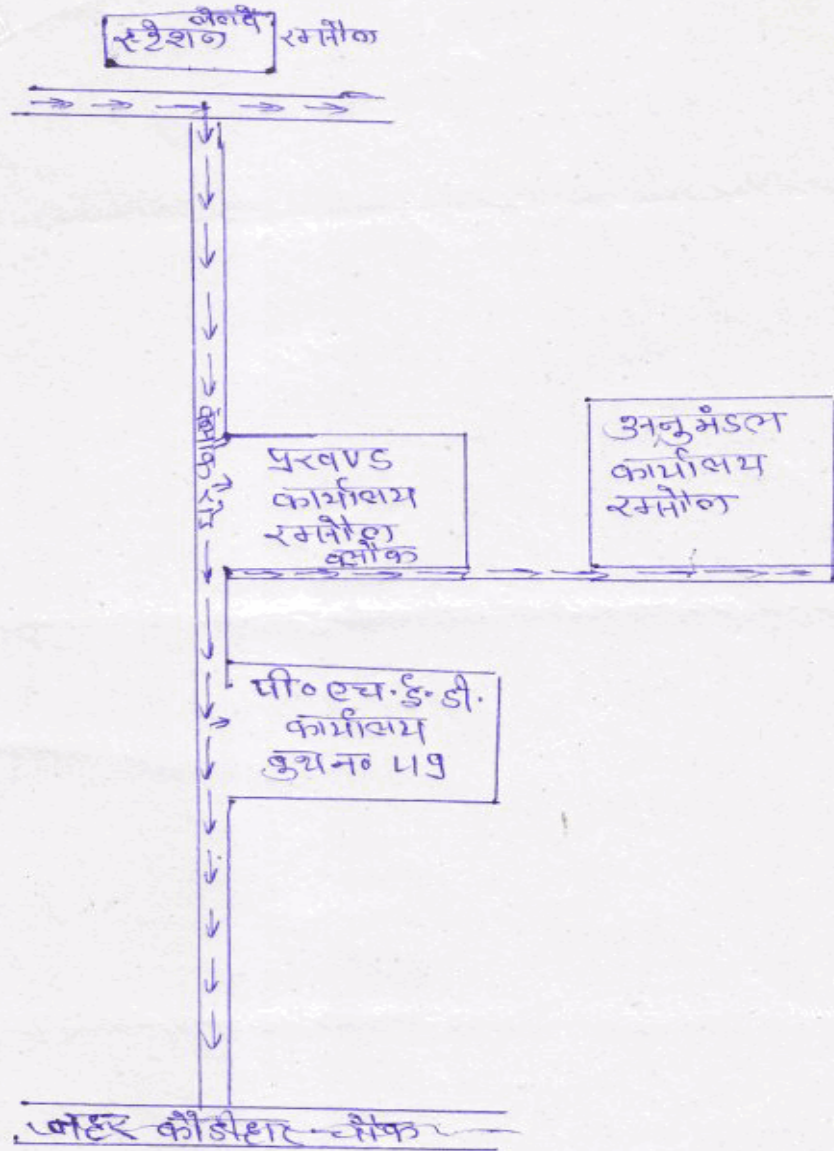 रेलवे
स्टेशन रक्सौल
प्रखण्ड
कार्यालय
रक्सौल
ब्लौक
अनुमंडल
कार्यालय
रक्सौल
पी० एच. ई. डी.
कार्यालय
बुथ न० 49
नहर कौडीहार चौक